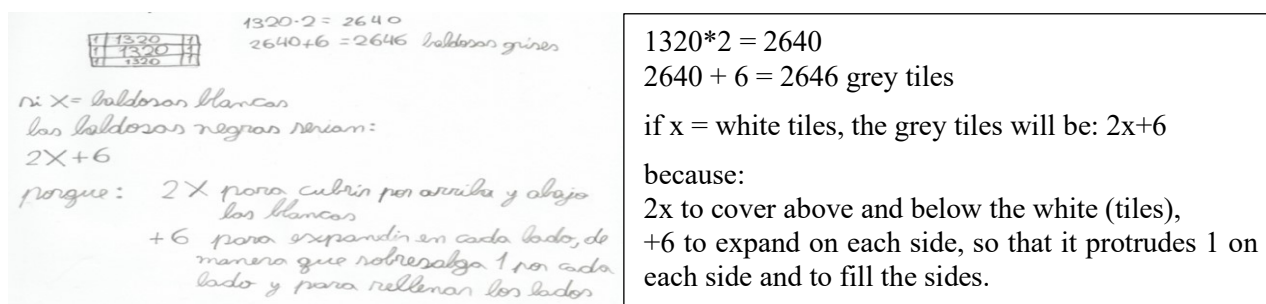 1 1320 1
1 1320 1
1 1320 1
1320·2 = 2640
2640+6 = 2646 baldosas grises
si X= baldosas blancas
las baldosas negras serian:
2X+6
porque: 2X para cubrir por arriba y abajo
las blancas
+6 para expandir en cada lado, de
manera que sobresalga 1 por cada
lado y para rellenar los lados
1320*2 = 2640
2640 + 6 = 2646 grey tiles
if x = white tiles, the grey tiles will be: 2x+6
because:
2x to cover above and below the white (tiles),
+6 to expand on each side, so that it protrudes 1 on
each side and to fill the sides.